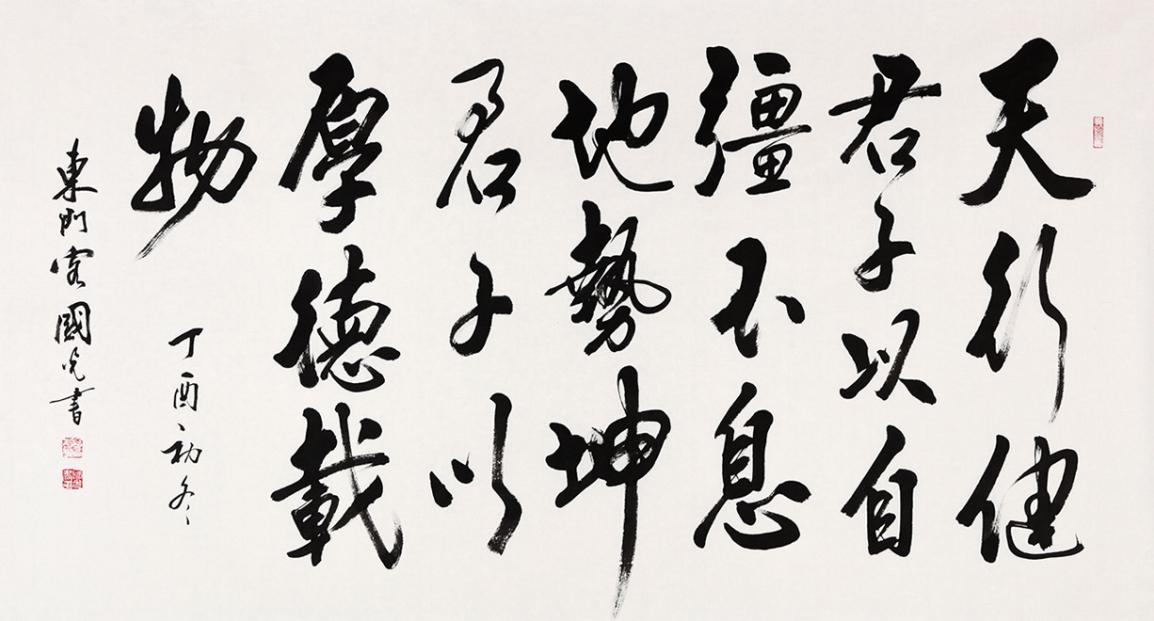 天行健
君子以自
彊不息
地勢坤
君子以
厚德載
物
丁酉初冬
東門客國光書